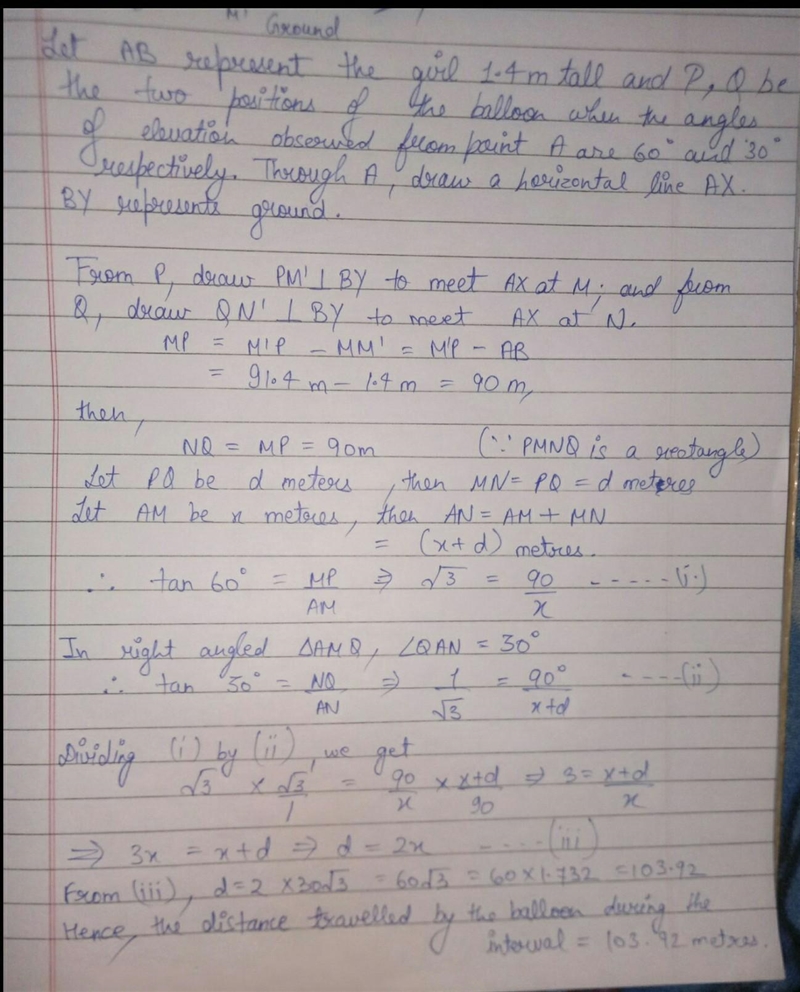 M' Ground
Let AB represent the girl 1.4 m tall and P, Q be
the two positions of the balloon when the angles
of elevation observed from point A are 60° and 30°
respectively. Through A, draw a horizontal line AX.
BY represents ground.
From P, draw PM' ⊥ BY to meet AX at M; and from
Q, draw QN' ⊥ BY to meet AX at N.
MP = M'P - MM' = M'P - AB
= 91.4 m - 1.4 m = 90 m,
then,
NQ = MP = 90m (∵ PMNQ is a rectangle)
Let PQ be d meters, then MN = PQ = d metres
Let AM be x metres, then AN = AM + MN
= (x+d) metres.
∴ tan 60° = MP/AM ⇒ √3 = 90/x -----(i)
In right angled ΔAMQ, ∠QAN = 30°
∴ tan 30° = NQ/AN ⇒ 1/√3 = 90°/x+d ----(ii)
Dividing (i) by (ii), we get
√3 × √3/1 = 90/x × x+d/90 ⇒ 3 = x+d/x
⇒ 3x = x+d ⇒ d = 2x ----(iii)
From (iii), d = 2 × 30√3 = 60√3 = 60×1.732 = 103.92
Hence, the distance travelled by the balloon during the
interval = 103.92 metres.